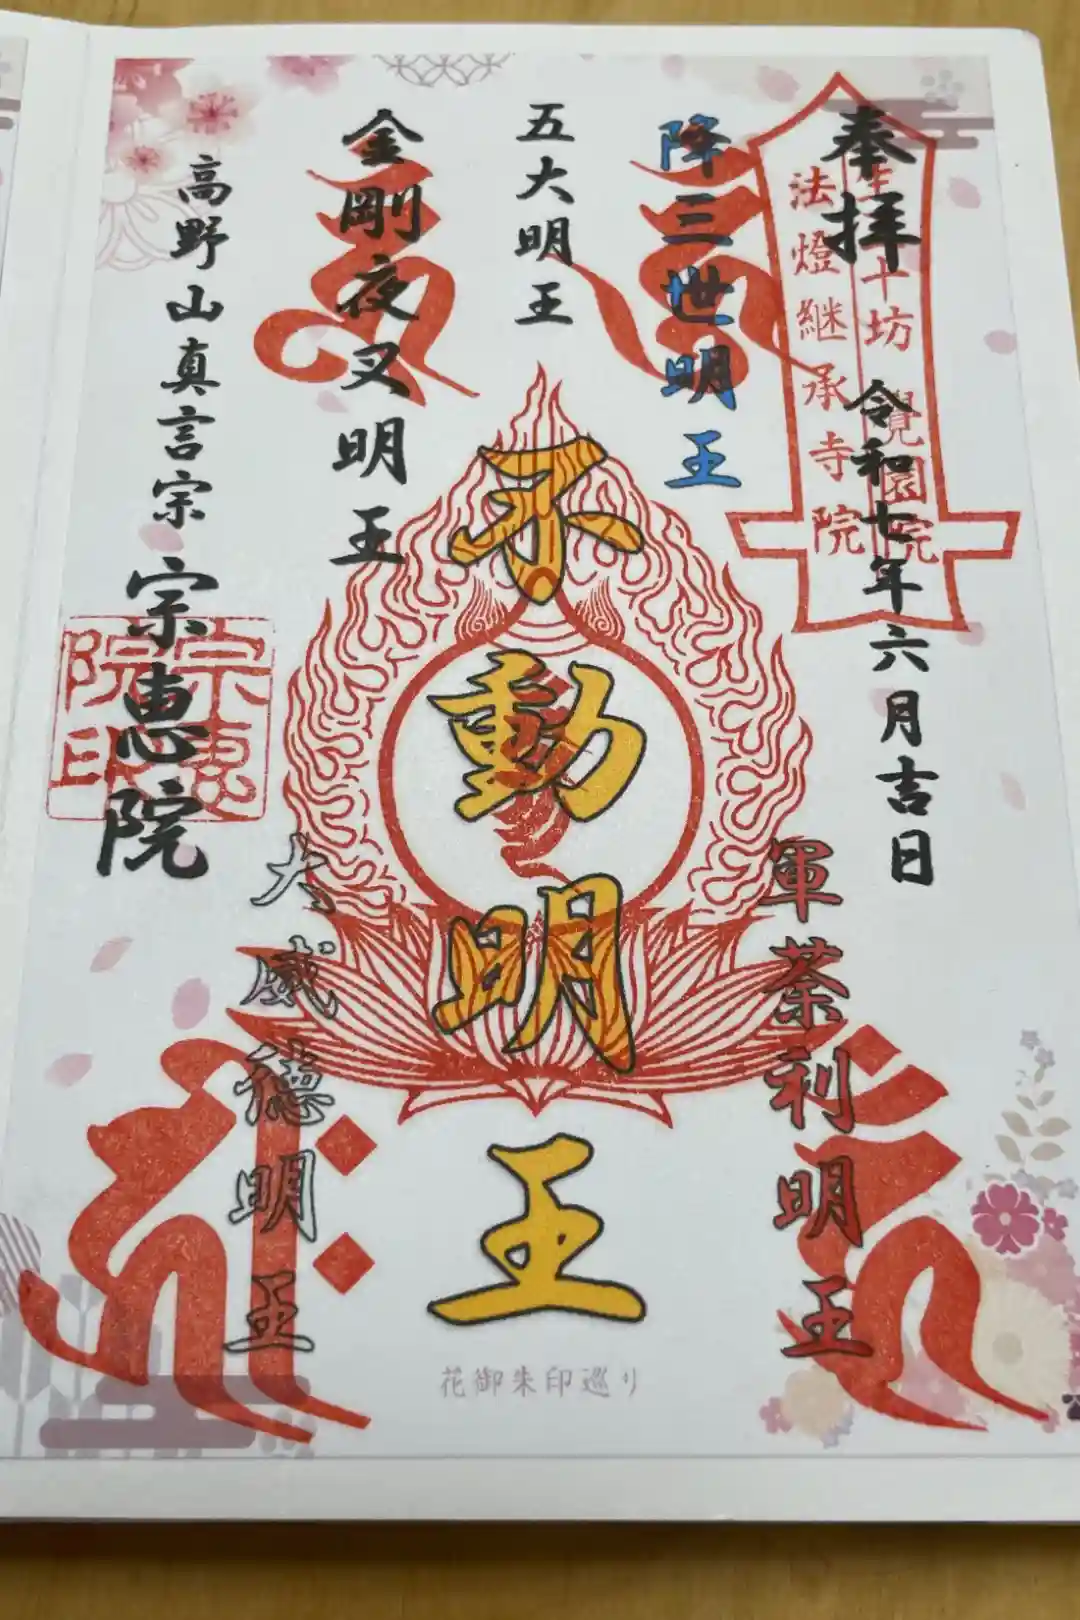 奉拝
令和七年六月吉日
坊
覺園院
法燈継承寺院
降三世明王
軍荼利明王
五大明王
不動明王
金剛夜叉明王
大威徳明王
高野山真言宗
宗惠院
宗惠院印
花御朱印巡り